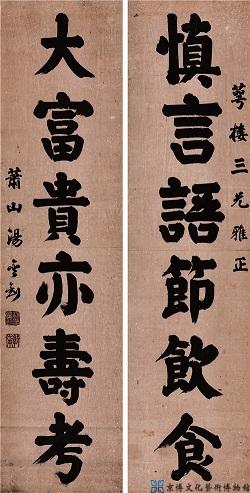 萼樓三兄雅正
慎言語節飲食
大富貴亦壽考
蕭山湯金釗
京博文化藝術博物館